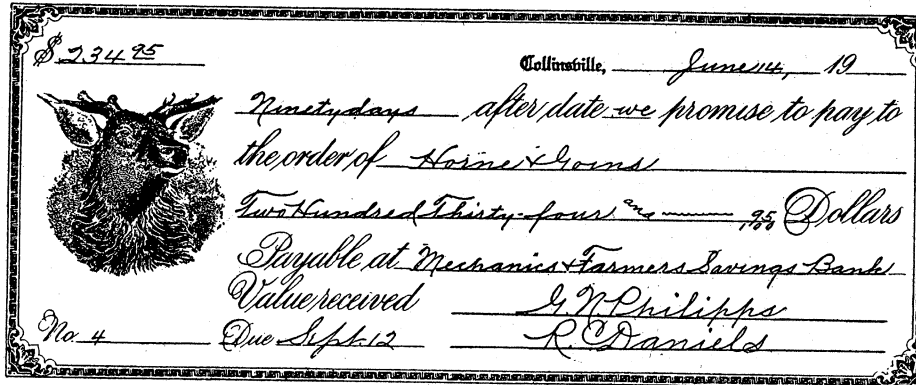 $ 234 95
Collinsville, June 14, 19
Ninety days after date we promise to pay to
the order of Horne & Goins
Two Hundred Thirty-four and 95/100 Dollars
Payable at Mechanics & Farmers Savings Bank
Value received G. N. Philipps
No. 4 Due Sept. 12 R. C. Daniels